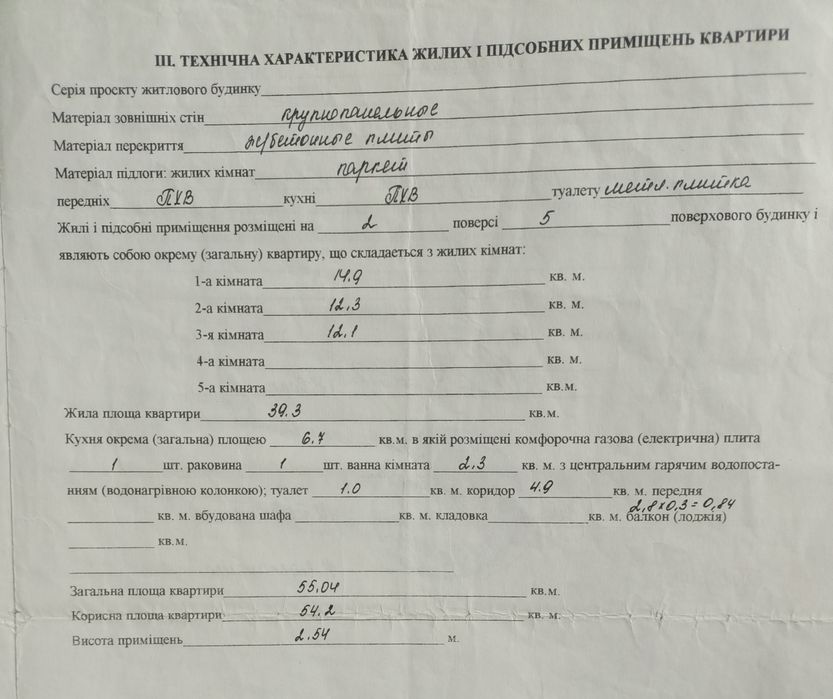 ІІІ. ТЕХНІЧНА ХАРАКТЕРИСТИКА ЖИЛИХ І ПІДСОБНИХ ПРИМІЩЕНЬ КВАРТИРИ
Серія проєкту житлового будинку
Матеріал зовнішніх стін крупнопанельные
Матеріал перекриття ж/бетонные плиты
Матеріал підлоги: жилих кімнат паркет
передніх ПХВ кухні ПХВ туалету метл. плитка
Жилі і підсобні приміщення розміщені на 2 поверсі 5 поверхового будинку і
являють собою окрему (загальну) квартиру, що складається з жилих кімнат:
1-а кімната 14.9 кв. м.
2-а кімната 12,3 кв. м.
3-я кімната 12,1 кв. м.
4-а кімната кв. м.
5-а кімната кв.м.
Жила площа квартири 39.3 кв.м.
Кухня окрема (загальна) площею 6.7 кв.м. в якій розміщені комфорочна газова (електрична) плита
1 шт. раковина 1 шт. ванна кімната 2,3 кв. м. з центральним гарячим водопоста-
нням (водонагрівною колонкою); туалет 1.0 кв. м. коридор 4.9 кв. м. передня
2,8х0,3=0,84
кв. м. вбудована шафа кв. м. кладовка кв. м. балкон (лоджія)
кв.м.
Загальна площа квартири 55,04 кв.м.
Корисна площа квартири 54.2 кв. м.
Висота приміщень 2.54 м.